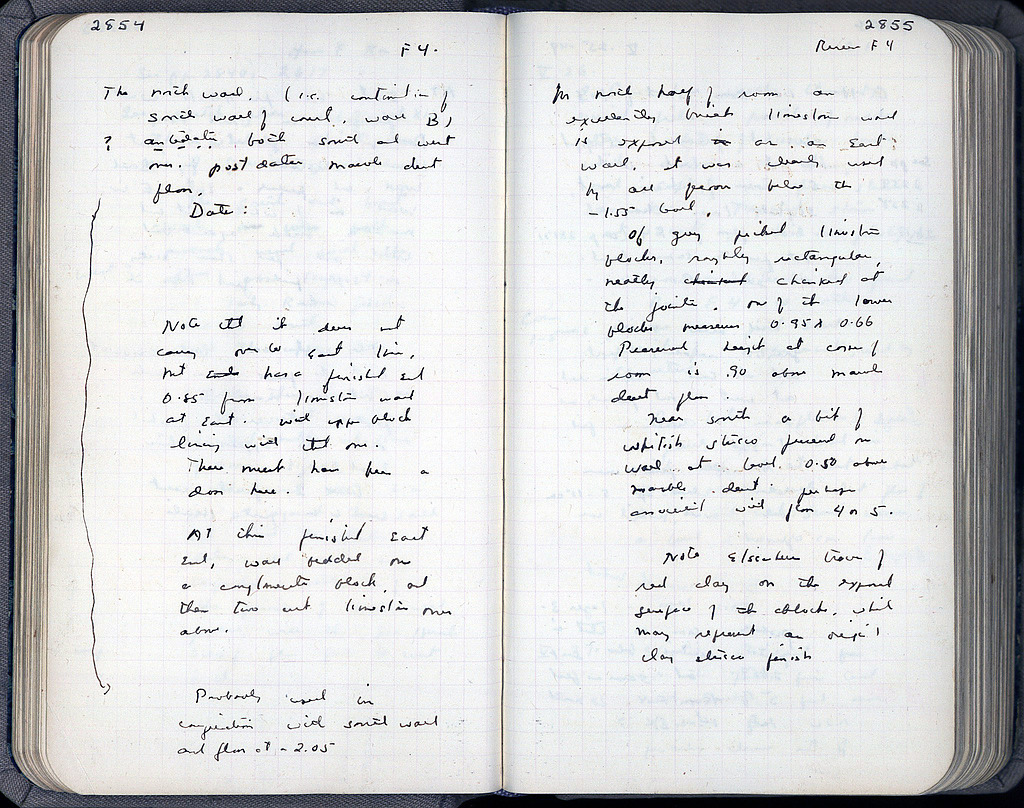 2854
F4.
The north wall. (i.e. continuation of
south wall of court, wall B)
? antedates both south and west
ones. post dates marble dust
floor.
Date:
Note that it does not
carry over to East line,
but ends has a finished end
0.85 from limestone wall
at East. with upper block
lining with that one.
There must have been a
door here.
At this finished East
End, wall bedded on
a conglomerate block, and
then two cut limestone ones
above.
Probably used in
conjunction with south wall
and floor at -2.05
2855
Room F4
In north half of room an
excellently built limestone wall
is exposed in as an East
wall. it was clearly used
by all persons below the
-1.55 level.
Of grey picked limestone
blocks, roughly rectangular,
neatly chinked chinked at
the joints. one of the lower
blocks measures 0.95 x 0.66
Preserved height at corner of
room is .90 above marble
dust floor.
Near south a bit of
whitish stucco preserved on
wall at level 0.50 above
marble dust. perhaps
associated with floor 4 or 5.
Note Elsewhere traces of
red clay on the exposed
surface of the blocks, which
may represent an original
clay stucco finish